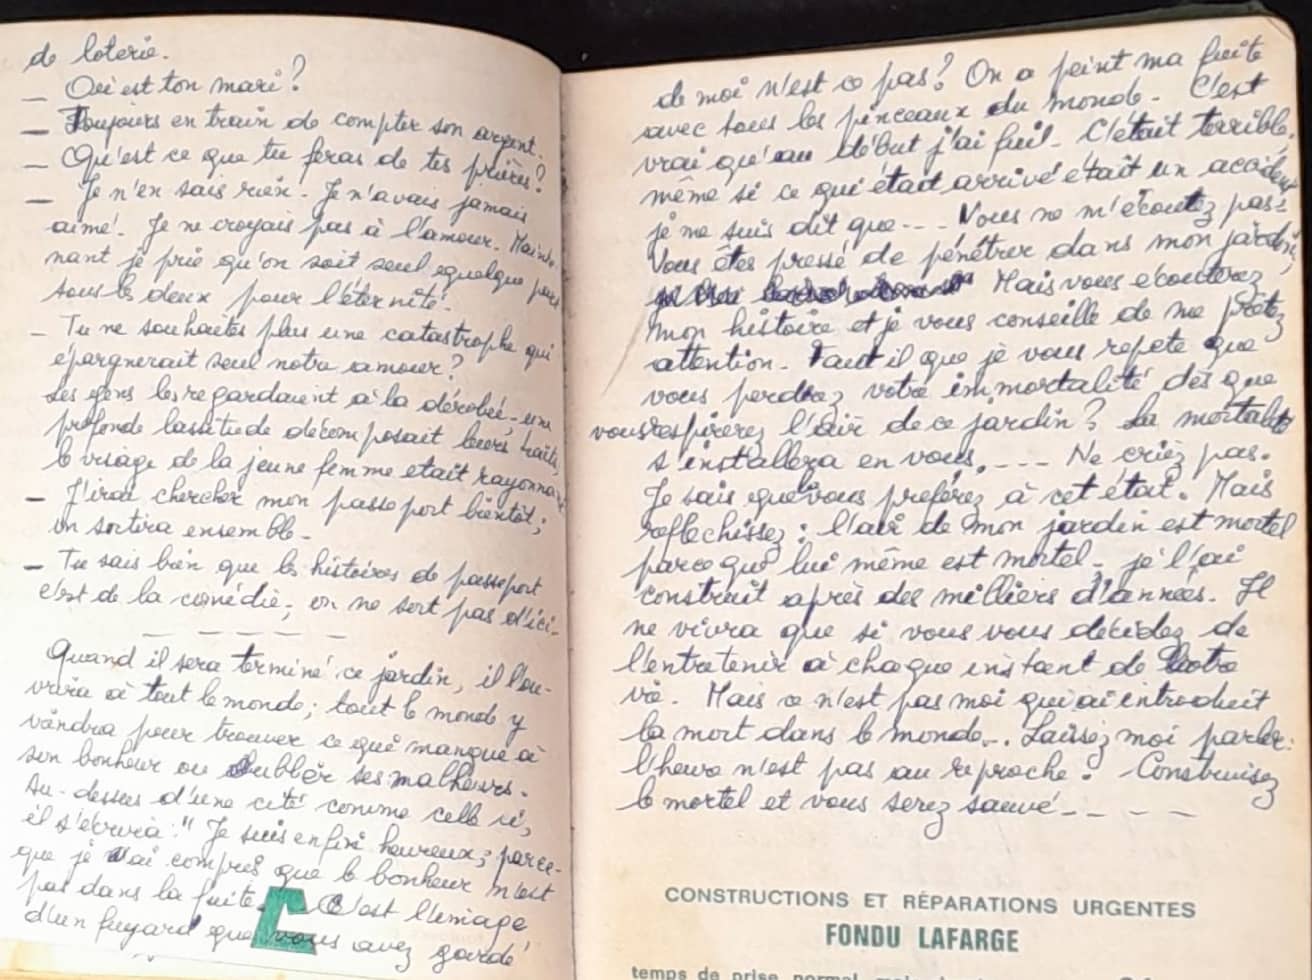 de loterie.
_ Où est ton mari ?
_ Toujours en train de compter son argent.
_ Qu'est ce que tu feras de tes prières ?
_ Je n'en sais rien. Je n'avais jamais
aimé. Je ne croyais pas à l'amour. Mainte
nant je prie qu'on soit seul quelque part
tous les deux pour l'éternité.
_ Tu ne souhaites plus une catastrophe qui
épargnerait seul notre amour ?
Les gens les regardaient à la dérobée, une
profonde lassitude décomposait leurs traits,
le visage de la jeune femme etait rayonnant
_ J'irai chercher mon passeport bientôt ;
on sortira ensemble.
_ Tu sais bien que les histoires de passeport
c'est de la comédie ; on ne sort pas d'ici.
_ _ _ _ _
Quand il sera terminé ce jardin, il l'ou-
vrira à tout le monde ; tout le monde y
viendra pour trouver ce qui manque à
son bonheur ou oublier ses malheurs.
Au-dessus d'une cité comme celle ci,
il s'écrira : " Je suis enfin heureux ; parce-
que j'ai compris que le bonheur n'est
pas dans la fuite. C'est l'image
d'un fuyard que vous avez gardé
de moi n'est ce pas ? On a peint ma fuite
avec tous les pinceaux du monde. C'est
vrai qu'au début j'ai fui. C'était terrible,
même si ce qui était arrivé était un accident
je me suis dit que ... Vous ne m'écoutez pas :
Vous êtes pressé de pénétrer dans mon jardin,
Mais vous ecouterez
mon histoire et je vous conseille de me prêtez
attention. Faut il que je vous repete que
vous perdrez votre immortalité dès que
vous respirerez l'air de ce jardin ? La mortalité
s'installera en vous. ... Ne criez pas.
Je sais que vous preferez à cet état. Mais
reflechissez : l'air de mon jardin est mortel
parce que lui même est mortel. je l'ai
construit après des milliers d'années. Il
ne vivra que si vous vous décidez de
l'entretenir à chaque instant de votre
vie. Mais ce n'est pas moi qui ai introduit
la mort dans le monde... Laissez moi parler :
l'heure n'est pas au reproche. Construisez
le mortel et vous serez sauvé _ _ _ _
CONSTRUCTIONS ET RÉPARATIONS URGENTES
FONDU LAFARGE
temps de prise normal